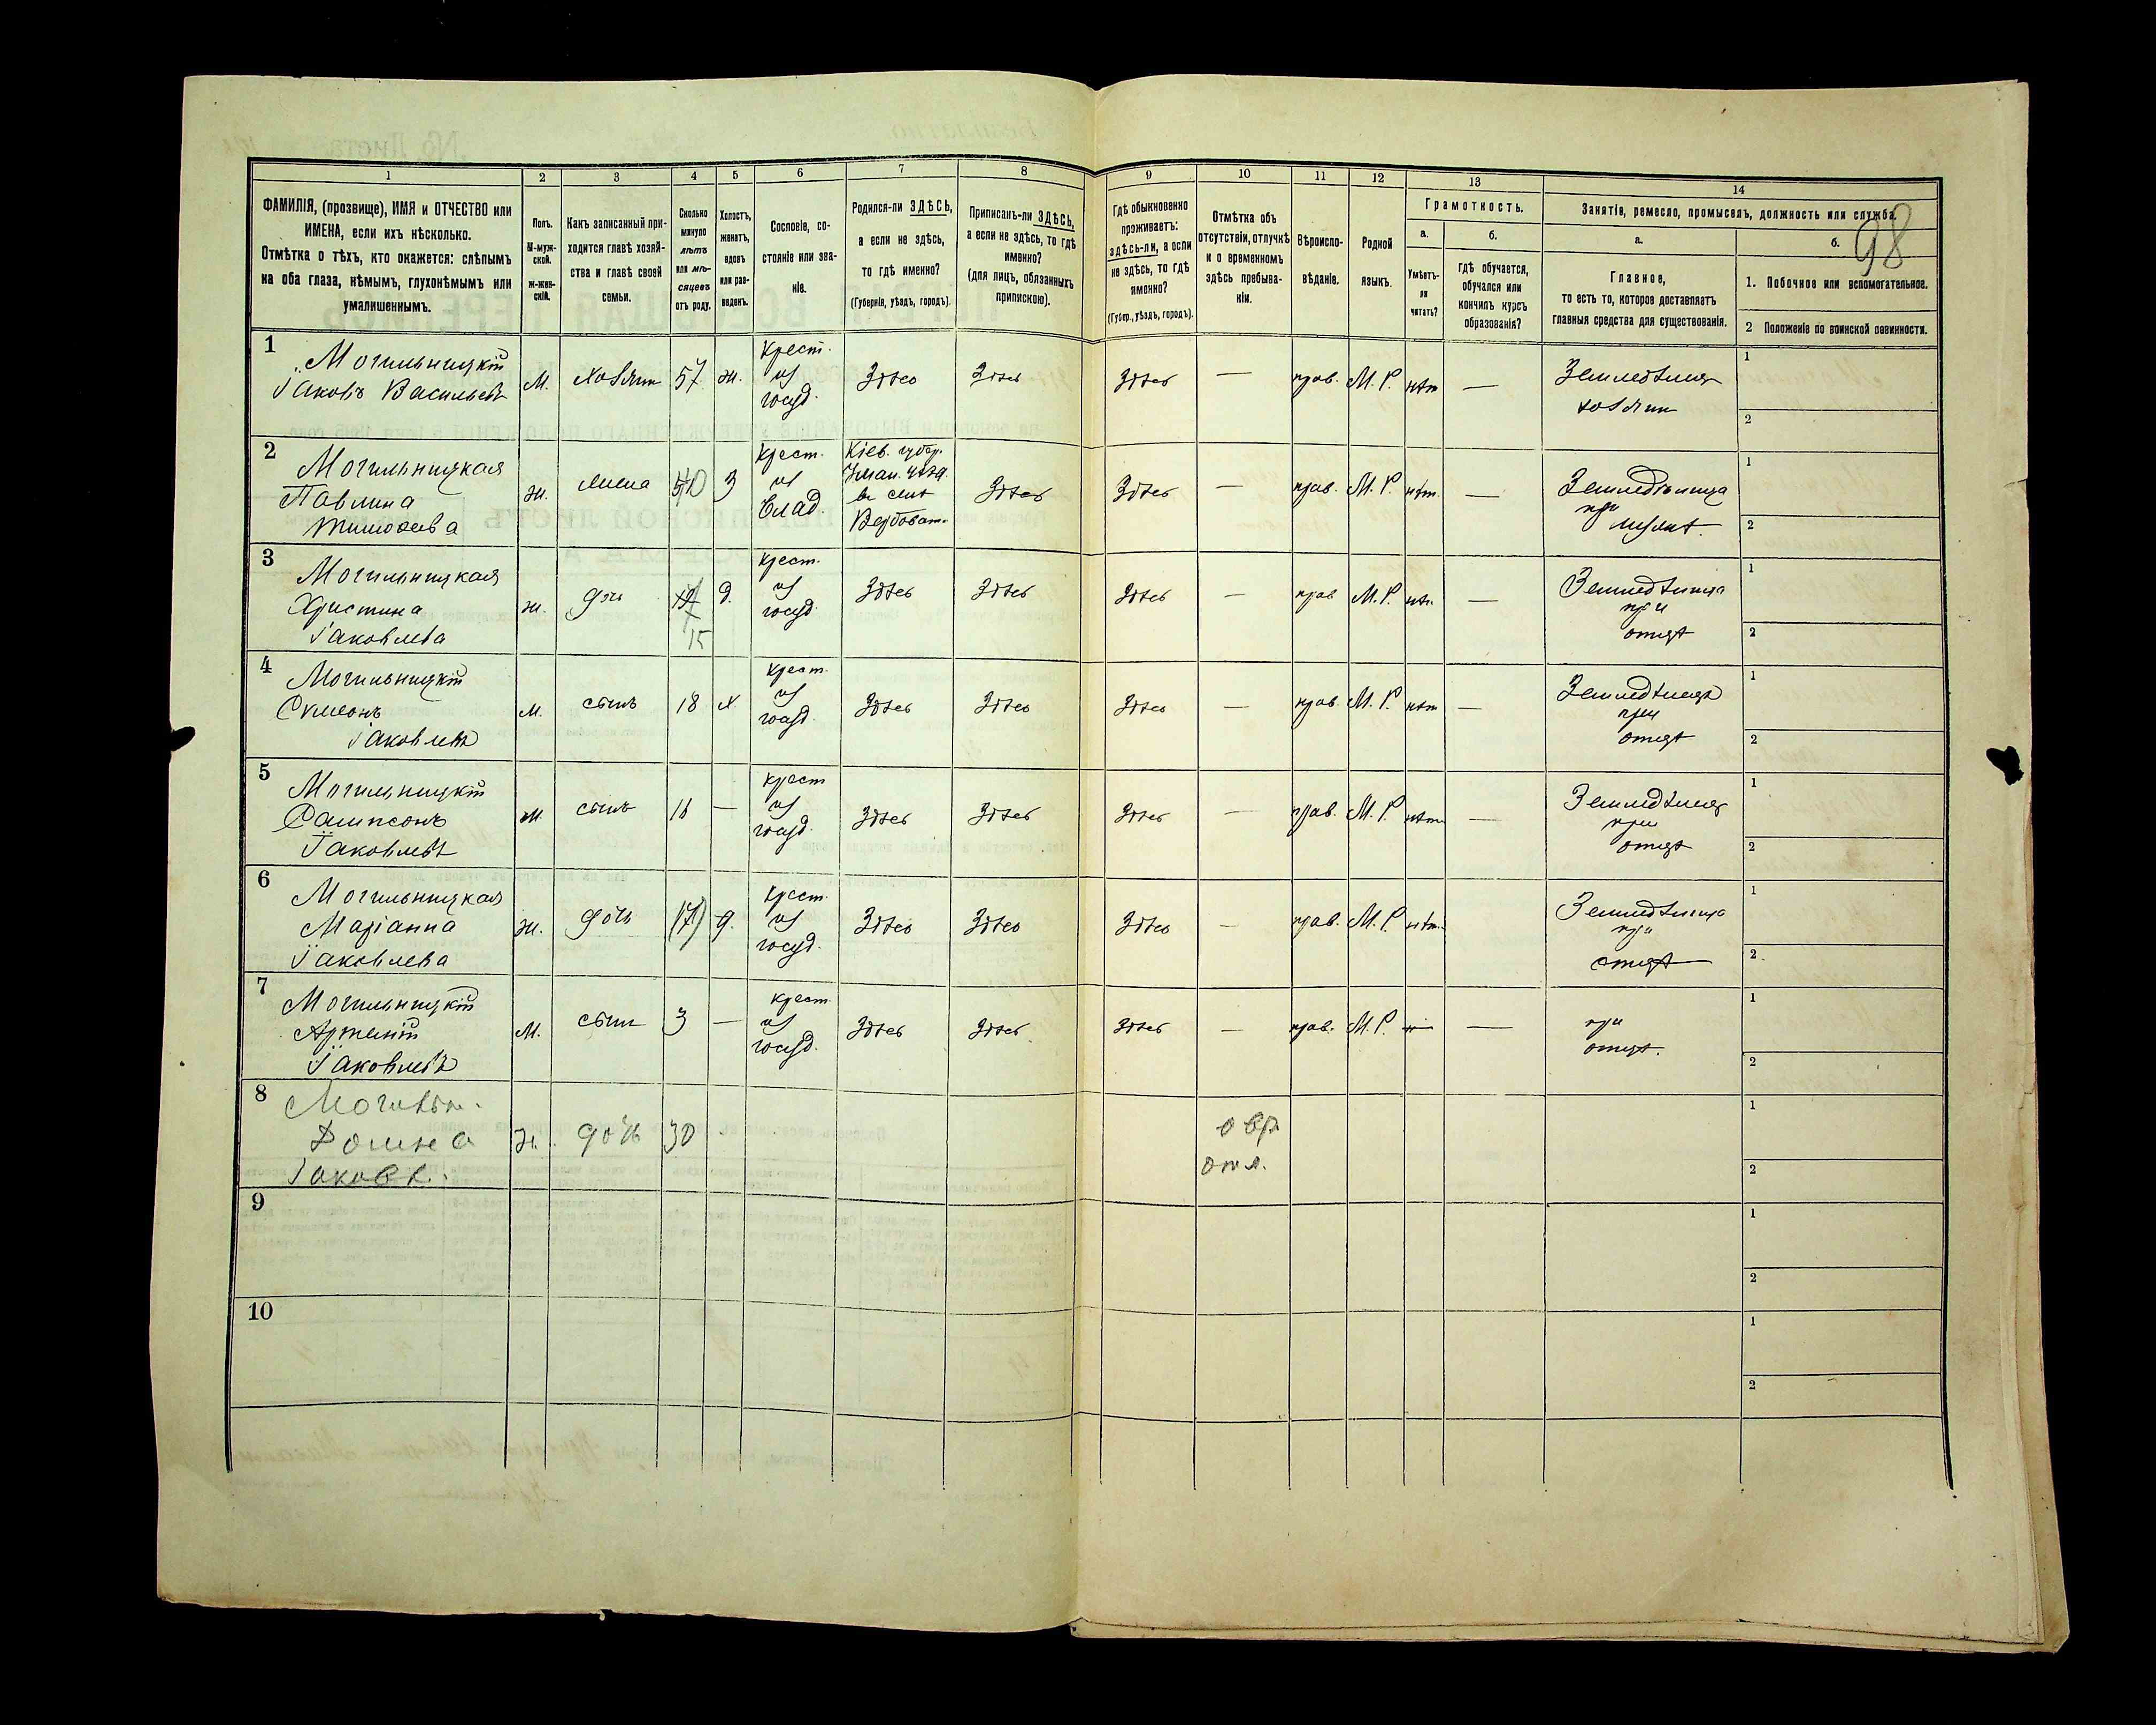 98
1
2
3
4
5
6
7
8
9
10
11
12
13
14
ФАМИЛІЯ, (прозвище), ИМЯ и ОТЧЕСТВО или
ИМЕНА, если ихъ нѣсколько.
Отмѣтка о тѣхъ, кто окажется: слѣпымъ
на оба глаза, нѣмымъ, глухонѣмымъ или
умалишеннымъ.
Полъ.
М-муж-
ской.
Ж-жен-
скій.
Какъ записанный при-
ходится главѣ хозяй-
ства и главѣ своей
семьи.
Сколько
минуло
лѣтъ
или мѣ-
сяцевъ
отъ роду.
Холостъ,
женатъ,
вдовъ
или раз-
веденъ.
Сословіе, со-
стояніе или зва-
ніе.
Родился-ли ЗДѢСЬ,
а если не здѣсь,
то гдѣ именно?
(Губернія, уѣздъ, городъ).
Приписанъ-ли ЗДѢСЬ,
а если не здѣсь, то гдѣ
именно?
(для лицъ, обязанныхъ
припискою).
Гдѣ обыкновенно
проживаетъ:
здѣсь-ли, а если
не здѣсь, то гдѣ
именно?
(Губер., уѣздъ, городъ).
Отмѣтка объ
отсутствіи, отлучкѣ
и о временномъ
здѣсь пребыва-
ніи.
Вѣроиспо-
вѣданіе.
Родной
языкъ.
Грамотность.
а.
Умѣетъ-
ли
читать?
б.
гдѣ обучается,
обучался или
кончилъ курсъ
образованія?
Занятіе, ремесло, промыселъ, должность или служба.
а.
Главное,
то есть то, которое доставляетъ
главныя средства для существованія.
б.
1. Побочное или вспомогательное.
2 Положеніе по воинской повинности.
1
Могильницкій
Іаковъ Васильевъ
М. хозяин 57 ж.
крест.
из
госуд.
Здѣсь Здѣсь Здѣсь — прав. М. Р. нѣт —
Земледѣлец
хозяин
1
2
2
Могильницкая
Павлина
Тимофеева
ж. жена 40 З
крест.
из
влад.
Кіев. губер.
Уман. уѣзд.
в селѣ
Вербоват.
Здѣсь Здѣсь — прав. М. Р. нѣт. —
Земледѣлица
при
мужѣ.
1
2
3
Могильницкая
Христина
Іаковлева
ж. дочь
15
д.
крест.
из
госуд.
Здѣсь Здѣсь Здѣсь — прав М. Р. нѣт. —
Земледѣлица
при
отцѣ
1
2
4
Могильницкій
Симеонъ
Іаковлевъ
м. сынъ 18 х
крест.
из
госуд.
Здѣсь Здѣсь Здѣсь — прав. М. Р. нѣт —
Земледѣлецъ
при
отцѣ
1
2
5
Могильницкій
Сампсонъ
Іаковлевъ
м. сынъ —
крест
из
госуд.
Здѣсь Здѣсь Здѣсь — прав. М. Р. нѣт —
Земледѣлец
при
отцѣ
1
2
6
Могильницкая
Маріанна
Іаковлева
ж. дочь д.
крест.
из
госуд.
Здѣсь Здѣсь Здѣсь — прав. М. Р. нѣт.
Земледѣлица
при
отцѣ
1
2
7
Могильницкій
Артемій
Іаковлевъ
М. сын 3 —
крест.
из
госуд.
Здѣсь Здѣсь Здѣсь — прав. М. Р. — —
при
отцѣ.
1
2
8
Могильн.
Домна
Іаковл.
Ж. дочь 30
о вр.
отл.
1
2
9
1
2
10
1
2